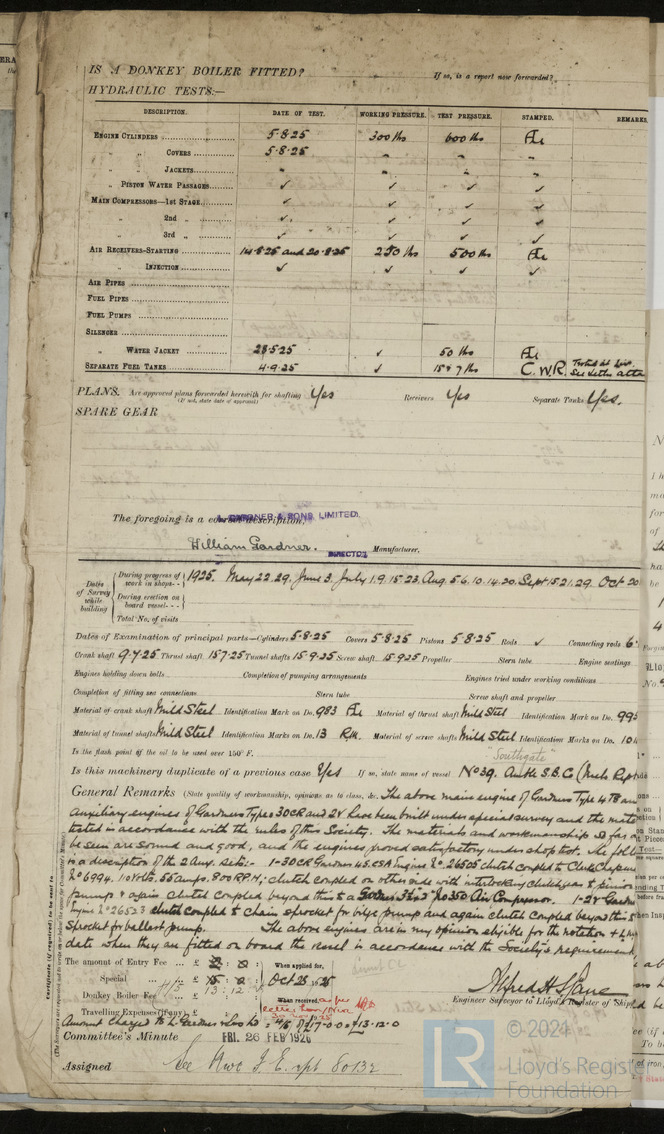 IS A DONKEY BOILER FITTED? If so, is a report now forwarded?
HYDRAULIC TESTS:—
DESCRIPTION. DATE OF TEST. WORKING PRESSURE. TEST PRESSURE. STAMPED. REMARKS
ENGINE CYLINDERS 5.8.25 300 lbs 600 lbs
" " COVERS 5.8.25 " " "
" " JACKETS " " " "
" PISTON WATER PASSAGES ✓ ✓ ✓ ✓
MAIN COMPRESSORS—1st STAGE ✓ ✓ ✓ ✓
" 2nd " ✓ ✓ ✓ ✓
" 3rd " ✓ ✓ ✓ ✓
AIR RECEIVERS—STARTING 14.8.25 and 20.8.25 250 lbs 500 lbs
" INJECTION ✓ ✓ ✓ ✓
AIR PIPES
FUEL PIPES
FUEL PUMPS
SILENCER
" WATER JACKET 28.5.25 ✓ 50 lbs
SEPARATE FUEL TANKS 4.9.25 ✓ 15 & 7 lbs C.W.R.
PLANS. Are approved plans forwarded herewith for shafting Yes Receivers Yes Separate Tanks Yes.
(If not, state date of approval)
SPARE GEAR
The foregoing is a correct description,
GARDNER & SONS, LIMITED.
William Gardner. DIRECTOR Manufacturer.
Dates of Survey while building
During progress of work in shops - - 1925. May 22.29. June 3. July 1.9.15.23. Aug. 5.6.10.14.20. Sept 15.21.29. Oct 20
During erection on board vessel - - -
Total No. of visits
Dates of Examination of principal parts—Cylinders 5.8.25 Covers 5.8.25 Pistons 5.8.25 Rods ✓ Connecting rods 6
Crank shaft 9.7.25 Thrust shaft 15.7.25 Tunnel shafts 15.9.25 Screw shaft 15.9.25 Propeller Stern tube Engine seatings
Engines holding down bolts Completion of pumping arrangements Engines tried under working conditions
Completion of fitting sea connections Stern tube Screw shaft and propeller
Material of crank shaft Mild Steel Identification Mark on Do. 983 Material of thrust shaft Mild Steel Identification Mark on Do. 995
Material of tunnel shafts Mild Steel Identification Marks on Do. 13 R.K. Material of screw shafts Mild Steel Identification Marks on Do. 10
Is the flash point of the oil to be used over 150° F.
"Southgate"
Is this machinery duplicate of a previous case Yes If so, state name of vessel No 39.
General Remarks (State quality of workmanship, opinions as to class, &c. The above main engine of Gardners Type 4T8 and
auxiliary engines of Gardners Types 3OCR and 2V have been built under special survey and the mate
tested in accordance with the rules of this Society. The materials and workmanship so far as
be seen are sound and good, and the engines proved satisfactory under shop test. The foll
is a description of the 2 Aux. Sets:- 1-3OCR Gardner Engine No. 26505 clutch coupled to
No 6994. 110 Volts. 55 amps. 800 R.P.M; clutch coupled on other side with interlocking clutch gear to
pump & again clutch coupled beyond this to a No 350 Air Compressor. 1-2V Gardner
Engine No 26523 clutch coupled to chain sprocket for bilge pump and again clutch coupled beyond this
sprocket for ballast pump. The above engines are in my opinion eligible for the notation
date when they are fitted on board the vessel in accordance with the Society's requirement
The amount of Entry Fee ... £ 2 : 0 : When applied for,
Special ... £ 15 : 0 : Oct 23 1925
Donkey Boiler Fee ... £ When received,
Travelling Expenses (if any) £
Alfred H. Lane
Engineer Surveyor to Lloyd's Register of Ship
Amount charged to L. Gardner & Sons Ltd
Committee's Minute FRI. 26 FEB 1926
Assigned See Nwc J.E. rpt 80132
© 2021
LR
Lloyd's Register
Foundation